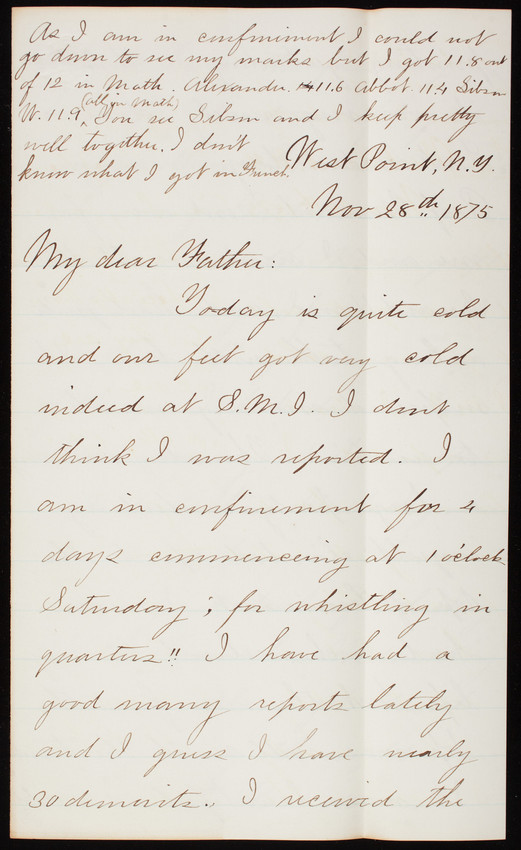 As I am in confinement I could not
go down to see my marks but I got 11.8 out
of 12 in Math. Alexander 11.6 Abbot 11.4 Gibson
W. 11.9 (all in Math) You see Gibson and I keep pretty
well together. I don't
know what I got in French.
West Point, N.Y.
Nov 28th 1875
My dear Father:
Today is quite cold
and our feet got very cold
indeed at S.M.I. I dont
think I was reported. I
am in confinement for 4
days commencing at 1 o'clock
Saturday; for whistling in
quarters!! I have had a
good many reports lately
and I guess I have nearly
30 demerits. I received the